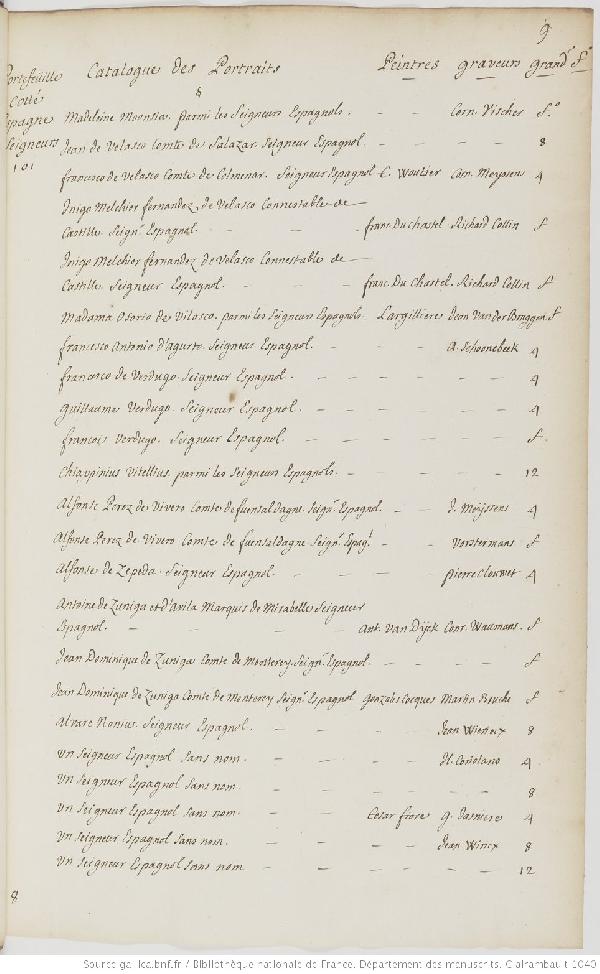 9
Portefeuille
Cotté
Espagne
Seigneurs
101
Catalogue des Portraits Peintres graveurs grandr
8
Madeleine Moonsia. parmi les Seigneurs Espagnols. - - Corn. Vischer fo
Jean de Velasco Comte de Salazar. Seigneur Espagnol. - - - - 8
francisco de Velasco Comte de Colmenar. Seigneur Espagnol C. Woutier Corn. Meyssens 4
Inigo Melchier fernandez de Velasco Connestable de
Castille Seignr. Espagnol. - - - franc. Duchastel Richard Collin f
Inigo Melchier fernandez de Velasco Connestable de
Castille Seigneur Espagnol. - - - franc. Du Chastel. Richard Collin f
Madama Osorio de Vilasco. parmi les Seigneurs Espagnols Largilliere Jean Van der Bruggen f
francesco Antonio d'agurto. Seigneur Espagnol. - - A. Schoonebeek 4
francisco de Verdugo. Seigneur Espagnol. - - - - 4
Guillaume Verdugo. Seigneur Espagnol. - - - - 4
francois Verdugo. Seigneur Espagnol. - - - - f.
Chiappinius Vitellius. parmi les Seigneurs Espagnols. - - - 12
Alfonse Perez de Vivero Comte de fuensaldagne. Seignr. Espagnol. - - J. Meijssens 4
Alfonse Perez de Vivero Comte de fuensaldagne. Seignr. Espagl. - - Vorstermans f
Alfonse de Zepeda. Seigneur Espagnol. - - - pierre Clouwet 4
Antoine de Zuniga et d'avila Marquis de Mirabelle Seigneur
Espagnol. - - - Ant. Van Dijck Conr. Waumans. f
Jean Dominique de Zuniga Comte de Monterey. Seignr. Espagnol. - - - f
Jean Dominique de Zuniga Comte de Monterey Seignr. Espagnol Gonzales Cocques Martin f
Alvare Nonius. Seigneur Espagnol. - - - Jean 8
un Seigneur Espagnol Sans nom. - - - H. 4.
un Seigneur Espagnol Sans nom. - - - - 8
un Seigneur Espagnol Sans nom. - - Cesar fiore G. 4
un Seigneur Espagnol Sans nom. - - - Jean 8
un Seigneur Espagnol Sans nom - - - - 12
8
Source gallica.bnf.fr / Bibliothèque nationale de France. Département des manuscrits. Clairambault 1040